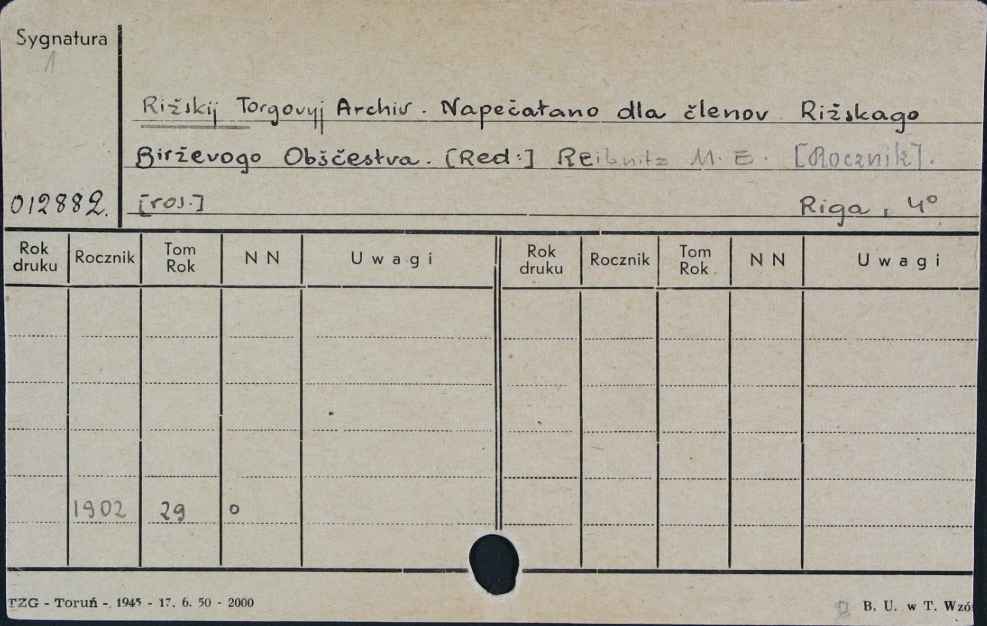 Sygnatura
1
Rižskij Torgovyj Archiv. Napečatano dla členov Rižskago
Birževogo Obščestva. [Red:] Reibnitz M. E. [Rocznik].
012882. [ros.] Riga, 4°
Rok druku Rocznik Tom Rok N N Uwagi Rok druku Rocznik Tom Rok N N Uwagi
1902 29 o
TZG - Toruń - 1945 - 17. 6. 50 - 2000 B. U. w T. Wzó